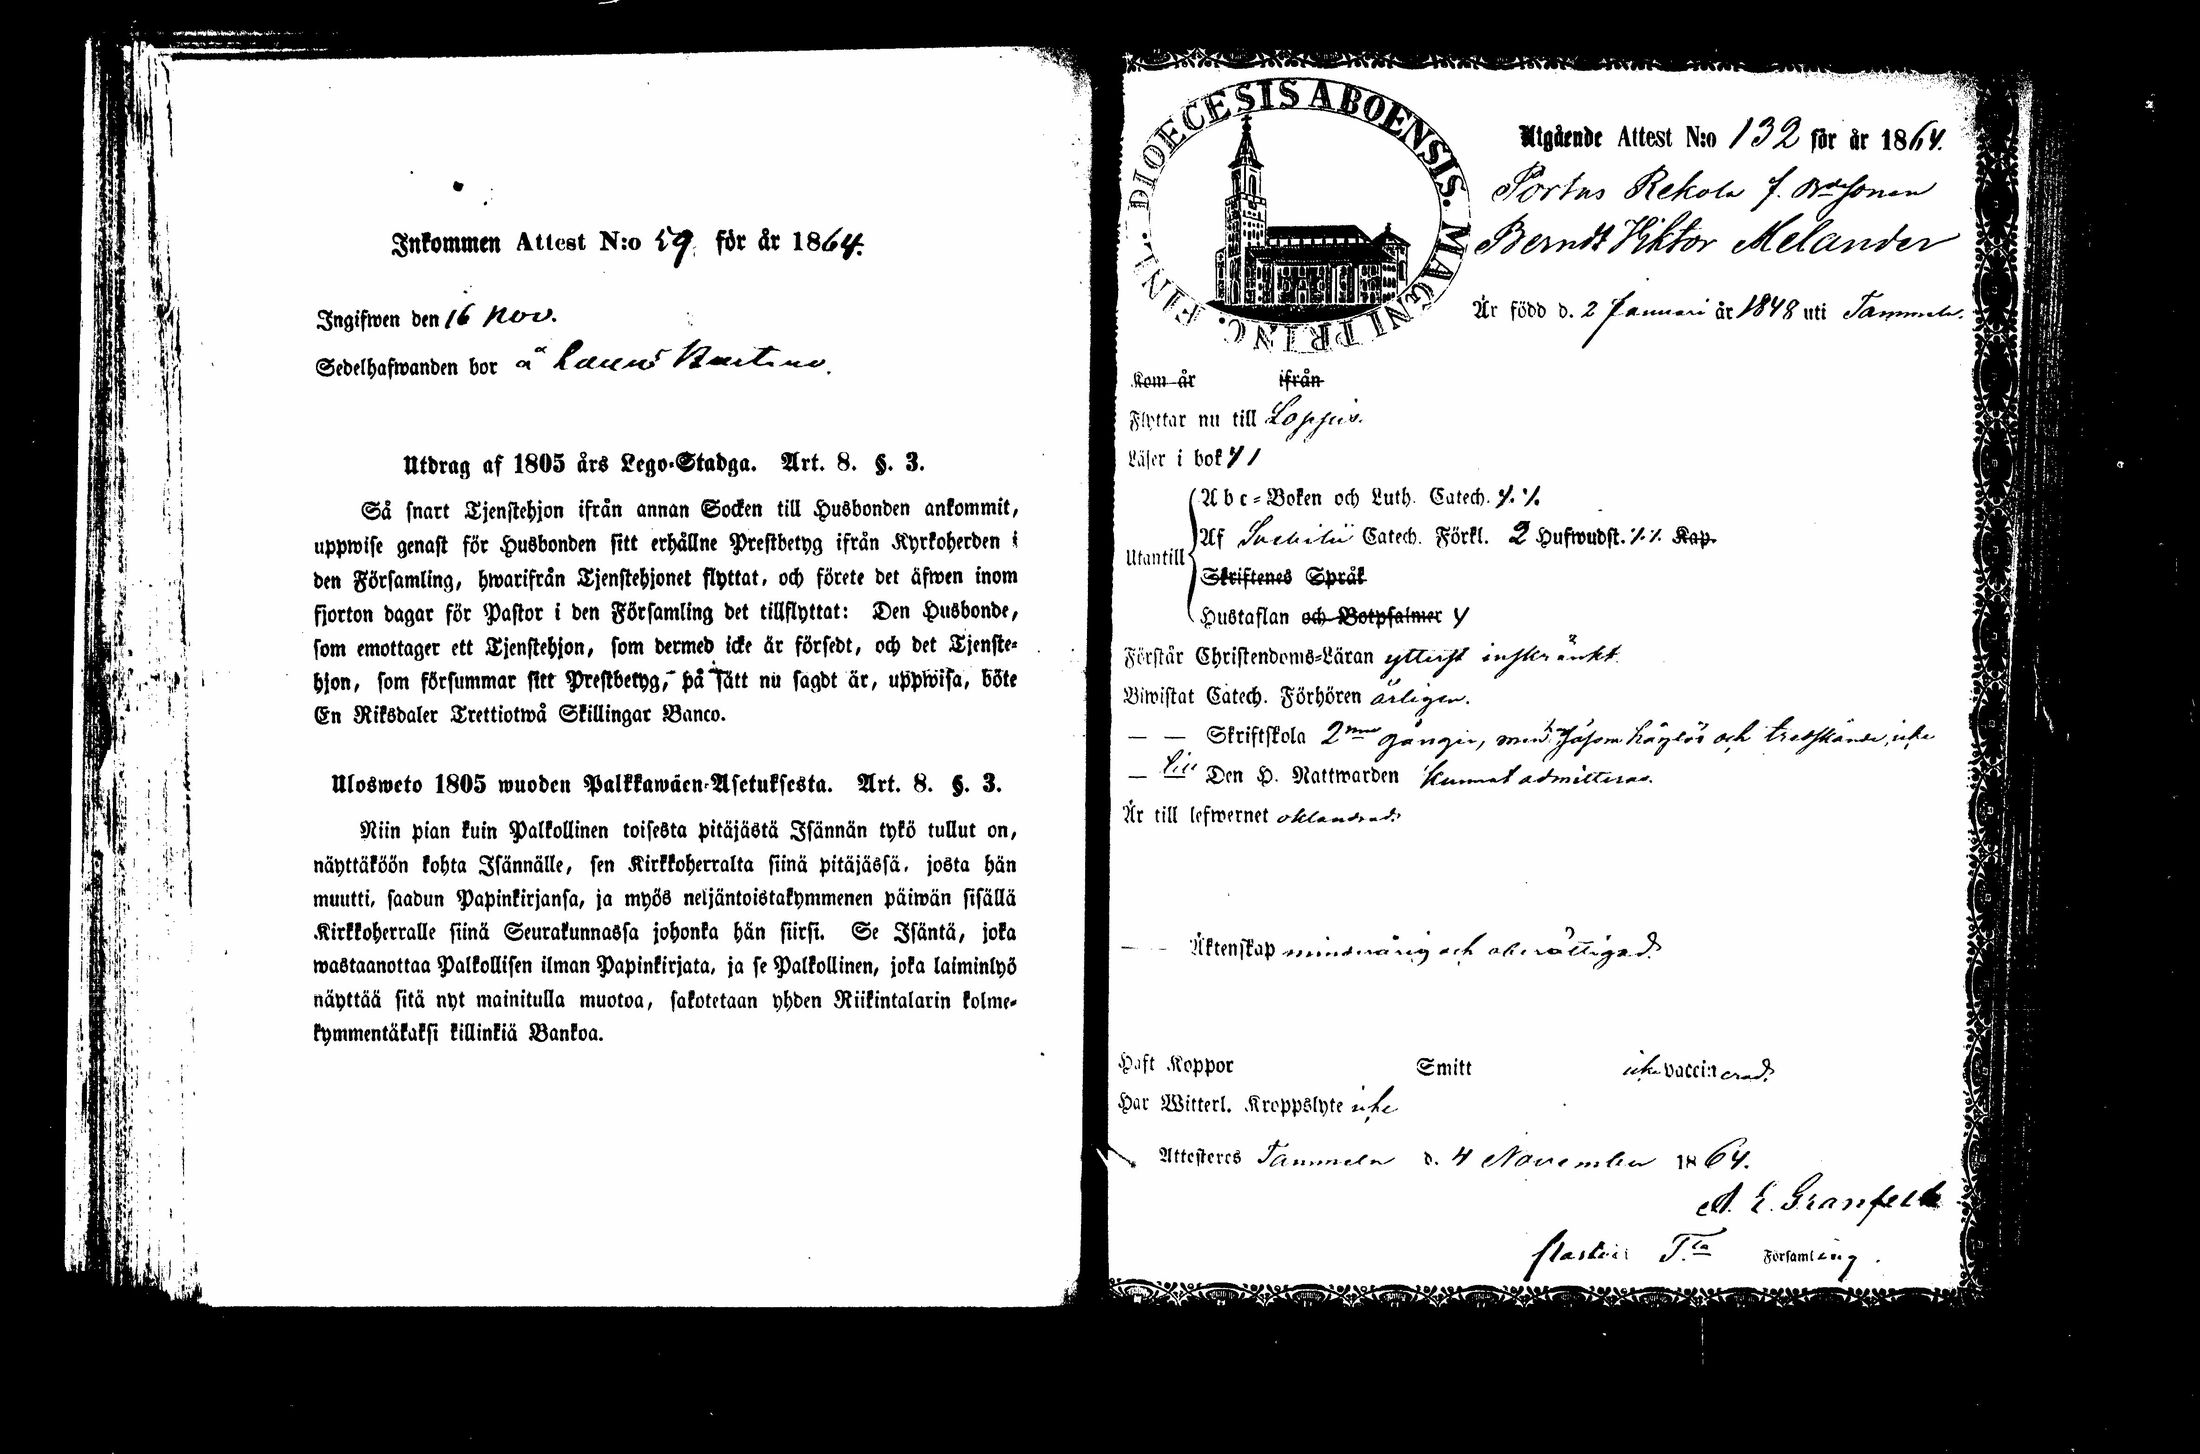 Inkommen Attest N:o 59. för år 1864.
Ingifwen den 16 Nov.
Sedelhafwanden bor å
Utdrag af 1805 års Lego-Stadga. Art. 8. §. 3.
Så snart Tjenstehjon ifrån annan Socken till Husbonden ankommit,
uppwise genast för Husbonden sitt erhållne Prestbetyg ifrån Kyrkoherden i
den Församling, hwarifrån Tjenstehjonet flyttat, och förete det äfwen inom
fjorton dagar för Pastor i den Församling det tillflyttat: Den Husbonde,
som emottager ett Tjenstehjon, som dermed icke är försedt, och det Tjenste-
hjon, som försummar sitt Prestbetyg, på sätt nu sagdt är, uppwisa, böte
En Riksdaler Trettiotwå Skillingar Banco.
Ulosweto 1805 wuoden Palkkawäen-Asetuksesta. Art. 8. §. 3.
Niin pian kuin Palkollinen toisesta pitäjästä Isännän tykö tullut on,
näyttäköön kohta Isännälle, sen Kirkkoherralta siinä pitäjässä, josta hän
muutti, saadun Papinkirjansa, ja myös neljäntoistakymmenen päiwän sisällä
Kirkkoherralle siinä Seurakunnassa johonka hän siirsi. Se Isäntä, joka
wastaanottaa Palkollisen ilman Papinkirjata, ja se Palkollinen, joka laiminlyö
näyttää sitä nyt mainitulla muotoa, sakotetaan yhden Riikintalarin kolme-
kymmentäkaksi killinkiä Bankoa.
DIOECESIS ABOENSIS. MAGNI PRINC. FINL.
Utgående Attest N:o 132 för år 1864.
Portas Rekola f.
Berndt Viktor Melander
Är född d. 2 Januari år 1848 uti Tammela.
Kom år ifrån
Flyttar nu till Loppis.
Läser i bok
Abc-Boken och Luth. Catech.
Utantill
Af Catech. Förkl. 2 Hufwudst. Kap.
Skriftenes Språk
Hustaflan och Botpsalmer
Förstår Christendoms-Läran ytterst inskränkt.
Biwistat Catech. Förhören årligen.
— — Skriftskola 2ne gånger, men såsom håglös och tredskande, icke
— till Den H. Nattwarden kunnat admitteras.
Är till lefwernet oklandrad.
— — Äktenskap minderårig och oberättigad.
Haft Koppor Smitt icke vaccinerad.
Har Witterl. Kroppslyte icke
Attesteres Tammela d. 4 November 1864.
A. E. Granfelt
Pastor i T:la Församling.